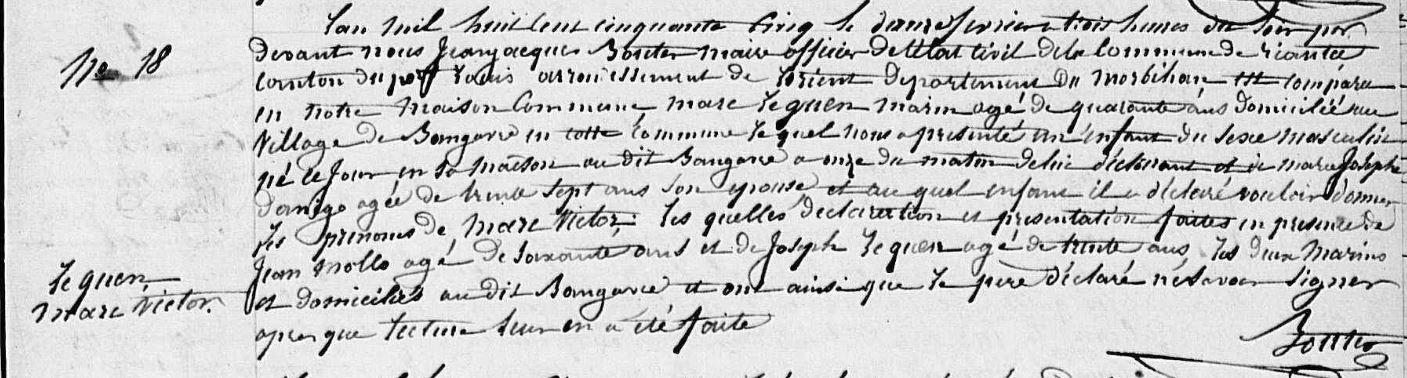 L'an mil huit cent cinquante cinq le douze fevrier a trois heures du soir par
No 18
devant nous Jean jacques maire officier de l'Etat Civil de la Commune de riantec
Canton du port Louis arrondissement de Lorient departement Du morbihan est comparu
en notre maison Commune marc Le quen marin agé de quarante ans domicilié au
Village de en cette commune le quel nous a presenté un enfant du sexe masculin
né ce jour en sa maison au dit a onze du matin de lui déclarant et de marie Joseph
agée de trente sept ans son epouse et au quel enfant il a déclaré vouloir donner
les prenoms de marc Victor; Les quelles declaration et presentation faites en presence de
Jean mollo agé de soixante ans et de Joseph Le quen agé de trente ans, Les deux marins
Le quen,
et domiciliés au dit et ont ainsi que le pere déclaré ne savoir signer
marc victor.
apres que lecture leur en a été faite